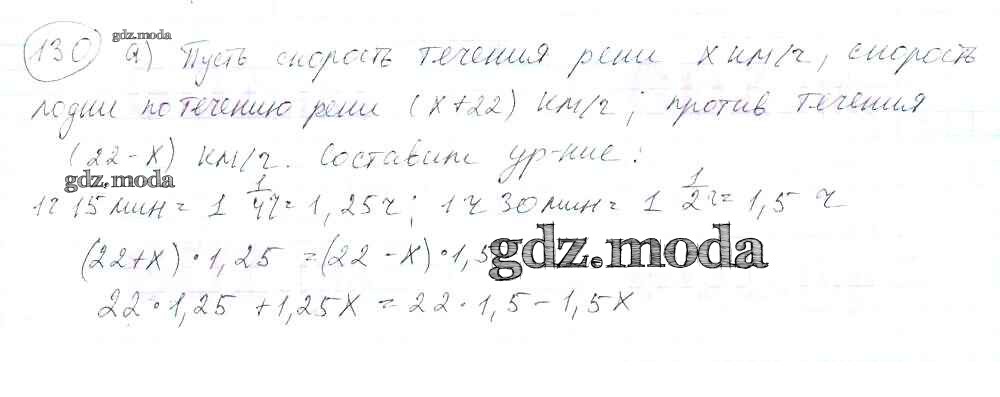 gdz.moda
130 а) Пусть скорость течения реки x км/ч, скорость
лодки по течению реки (x+22) км/ч; против течения
(22-x) км/ч. Составим ур-ние:
gdz.moda
1ч 15мин = 1 1/4 ч = 1,25ч; 1ч 30мин = 1 1/2 ч = 1,5 ч
(22+x)·1,25 = (22-x)·1,5
gdz.moda
22·1,25 + 1,25x = 22·1,5 - 1,5x